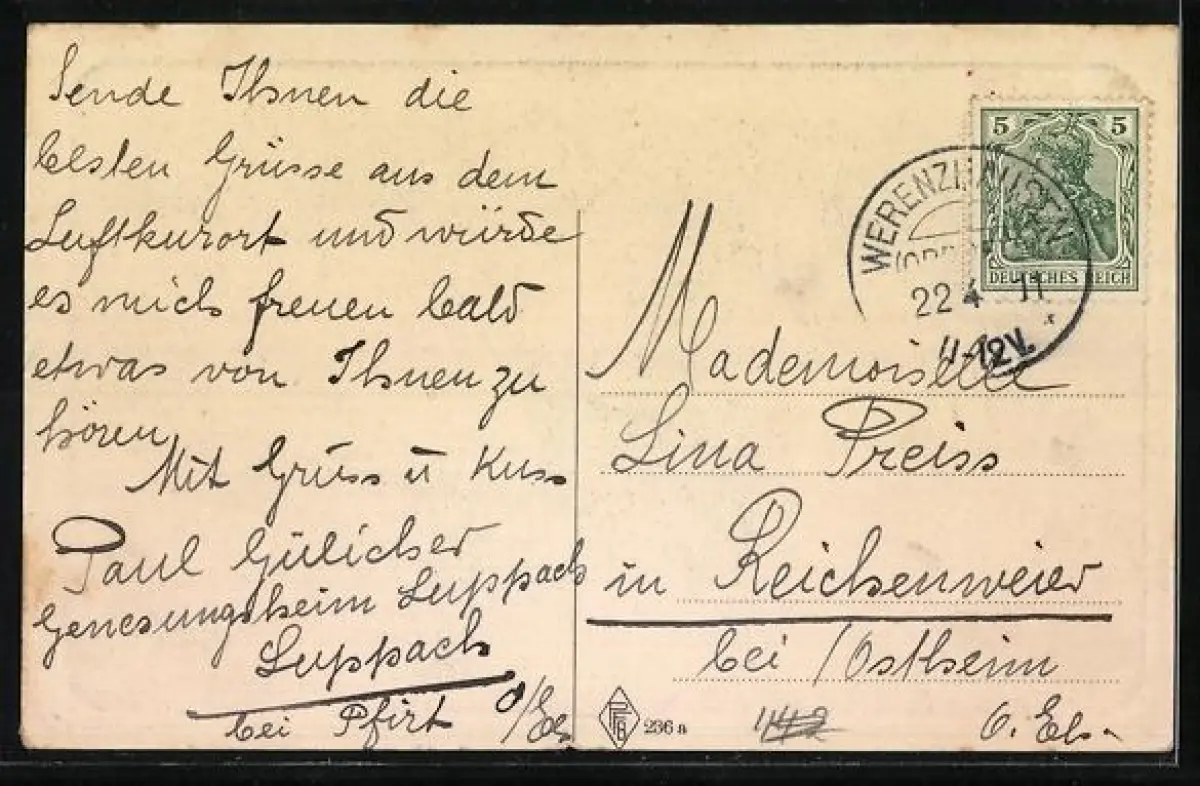 Sende Ihnen die
besten Grüsse aus dem
Luftkurort und würde
es mich freuen bald
etwas von Ihnen zu
hören
Mit Gruss u Kuss
Paul Gülicher
Genesungsheim Luppach
Luppach
bei Pfirt O/Els
5 5
DEUTSCHES REICH
WERENZHAUSEN
22 4 11
11-12V.
Mademoiselle
Lina Preiss
in Reichenweier
bei /Ostheim
O. Els.
236 a